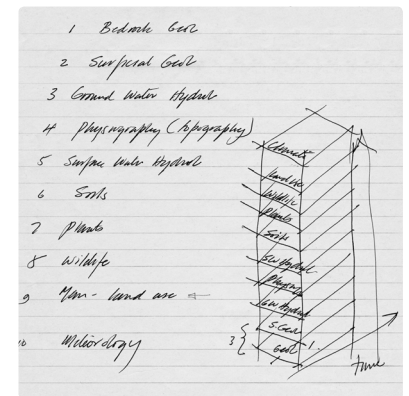 1 Bedrock Geol
2 Surficial Geol
3 Ground Water Hydrol
4 Physiography (topography)
5 Surface Water Hydrol
6 Soils
7 Plants
8 Wildlife
9 Man - land use
10 Meteorology
Climate
Land Use
Wildlife
Plants
Soils
SW Hydrol
Physiog
GW Hydrol
S. Geol
3 Geol 1.
time